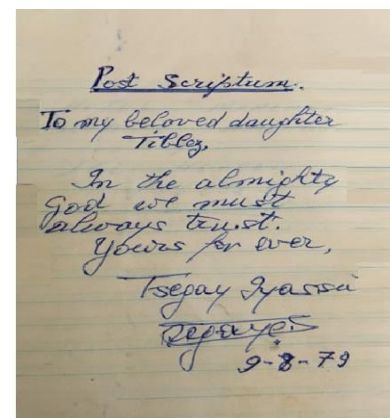 Post Scriptum.
To my beloved daughter
Tibləz,
In the almighty
God we must
always trust.
Yours for ever,
Tsegay Iyassu
9-8-79